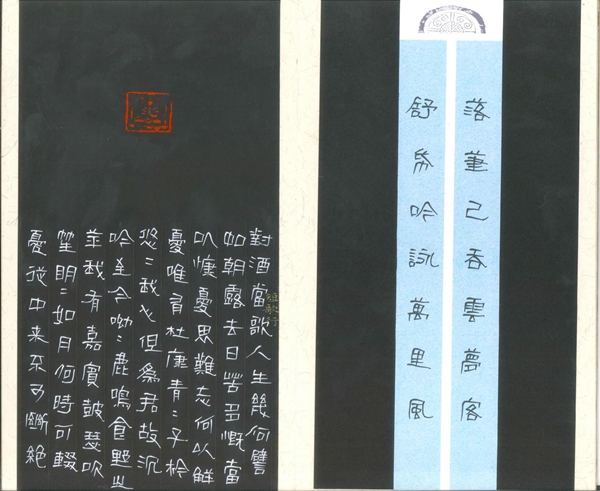 落筆已吞雲夢客
舒吟詠萬里風
短歌行
對酒當歌人生幾何譬
如朝露去日苦多慨當
以慷憂思難忘何以解
憂唯有杜康青〻子衿
悠〻我心但為君故沉
吟至今呦〻鹿鳴食野之
苹我有嘉賓鼓瑟吹
笙明〻如月何時可輟
憂從中来不可斷絕